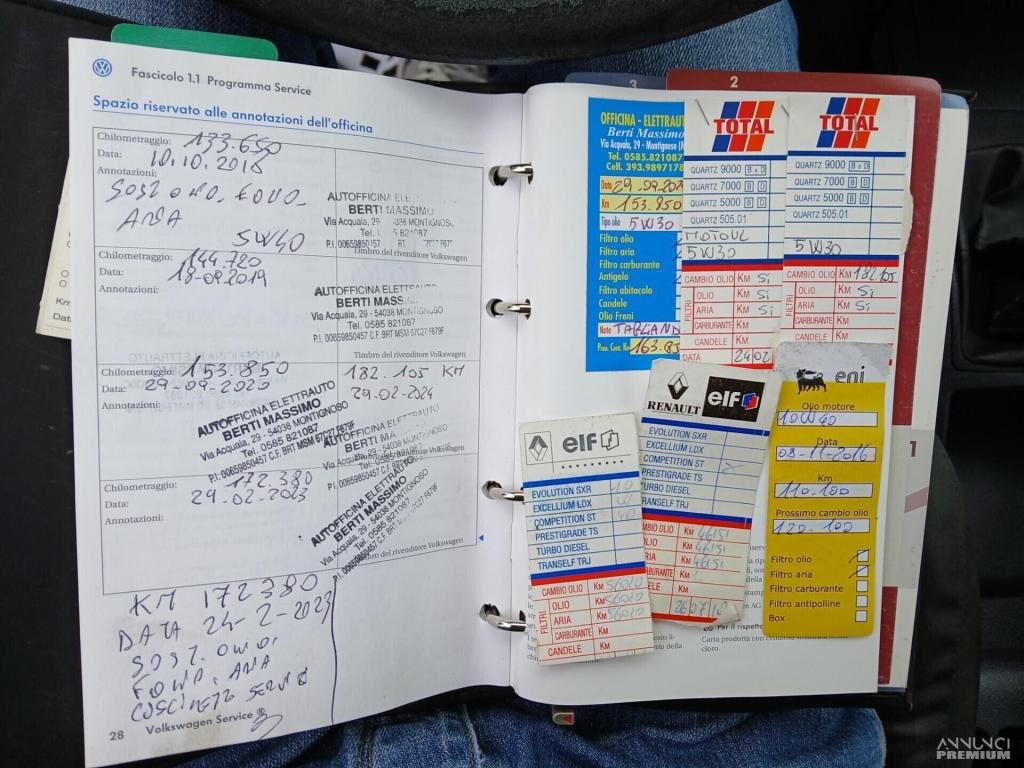 Fascicolo 1.1 Programma Service
Spazio riservato alle annotazioni dell'officina
Chilometraggio: 133.650
Data: 10.10.2018
Annotazioni:
ARIA
5W40
AUTOFFICINA ELETTRAUTO
BERTI MASSIMO
Via Acquala, 29 - 54038 MONTIGNOSO
Tel. 0585 821087
Timbro del rivenditore Volkswagen
Chilometraggio: 144.720
Data: 18-09-2019
Annotazioni:
AUTOFFICINA ELETTRAUTO
BERTI MASSIMO
Via Acquala, 29 - 54038 MONTIGNOSO
Tel. 0585 821087
P.I. 00659850457 C.F. BRT MSM 67C27 F679F
Timbro del rivenditore Volkswagen
Chilometraggio: 153.850
Data: 29-09-2020
Annotazioni:
AUTOFFICINA ELETTRAUTO
BERTI MASSIMO
Via Acquala, 29 - 54038 MONTIGNOSO
Tel. 0585 821087
P.I. 00659850457 C.F. BRT MSM 67C27 F679F
182.105 KM
29-02-2024
AUTOFFICINA ELETTRAUTO
BERTI MASSIMO
Via Acquala, 29 - 54038 MONTIGNOSO
Tel. 0585 821087
Chilometraggio: 172.380
Data: 24-02-2023
Annotazioni:
AUTOFFICINA ELETTRAUTO
BERTI MASSIMO
Via Acquala, 29 - 54038 MONTIGNOSO
Tel. 0585 821087
Timbro del rivenditore Volkswagen
KM 172380
DATA 24-2-2023
SOST. OLIO
ARIA
28 Volkswagen Service ®
3
2
1
OFFICINA - ELETTRAUT
Berti Massimo
Via Acquala, 29 - Montignoso
Tel. 0585.821087
Cell. 393.9897178
Data 29.09.202
Km 153.850
Tipo olio 5W30
Filtro olio
Filtro aria
Filtro carburante
Antigelo
Filtro abitacolo
Candele
Olio Freni
Note TAGLIAND
Pros. Cont. Km 163.85
TOTAL
QUARTZ 9000 B e D
QUARTZ 7000 B D
QUARTZ 5000 B D
QUARTZ 505.01
MOTOUL
5W30
CAMBIO OLIO Km Si
FILTRI
OLIO Km Si
ARIA Km Si
CARBURANTE Km
CANDELE Km
DATA 24/02
TOTAL
QUARTZ 9000 B e D
QUARTZ 7000 B D
QUARTZ 5000 B D
QUARTZ 505.01
5W30
CAMBIO OLIO Km 182.105
FILTRI
OLIO Km Si
ARIA Km Si
CARBURANTE Km
CANDELE Km
elf
EVOLUTION SXR
EXCELLIUM LDX
COMPETITION ST
PRESTIGRADE TS
TURBO DIESEL
TRANSELF TRJ
CAMBIO OLIO Km 56020
FILTRI
OLIO Km 56020
ARIA Km 56020
CARBURANTE Km
CANDELE Km
RENAULT elf
EVOLUTION SXR
EXCELLIUM LDX
COMPETITION ST
PRESTIGRADE TS
TURBO DIESEL
TRANSELF TRJ
CAMBIO OLIO Km 46151
OLIO Km 46151
ARIA Km 46151
CARBURANTE Km
Km
eni
Olio motore
10W40
Data
08-11-2016
Km
110-100
Prossimo cambio olio
120-100
Filtro olio
Filtro aria
Filtro carburante
Filtro antipolline
Box
Per il rispetto
Carta prodotta con cellulosa sbiancata
cloro.
ANNUNCI
PREMIUM